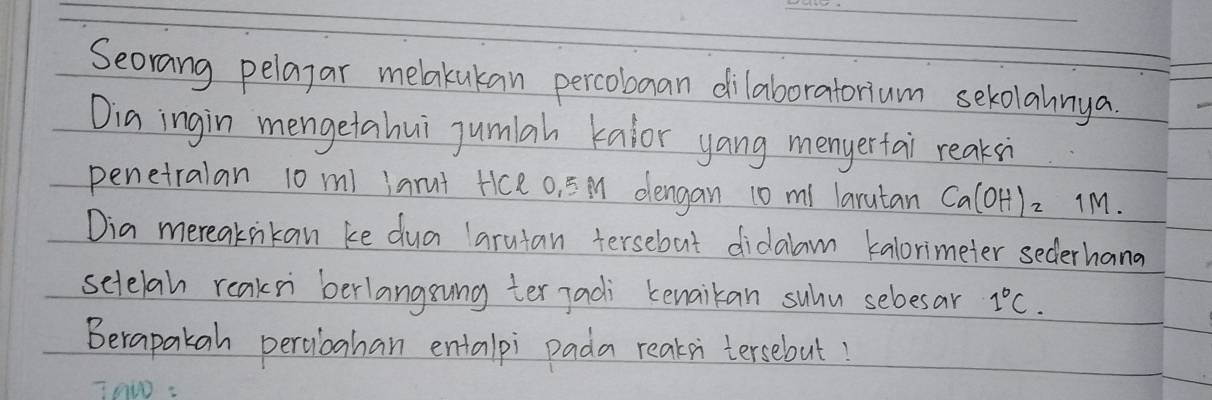 Seorang pelajar melakukan percobaan dilaboratorium sekolahnya.
Dia ingin mengetahui jumlah kalor yang menyertai reaksi
penetralan 10 ml larut HCl 0,5 M dengan 10 ml larutan Ca(OH)₂ 1M.
Dia mereaksikan ke dua larutan tersebut didalam kalorimeter sederhana
setelah reaksi berlangsung terjadi kenaikan suhu sebesar 1°C.
Berapakah perubahan entalpi pada reaksi tersebut!
Jaw :